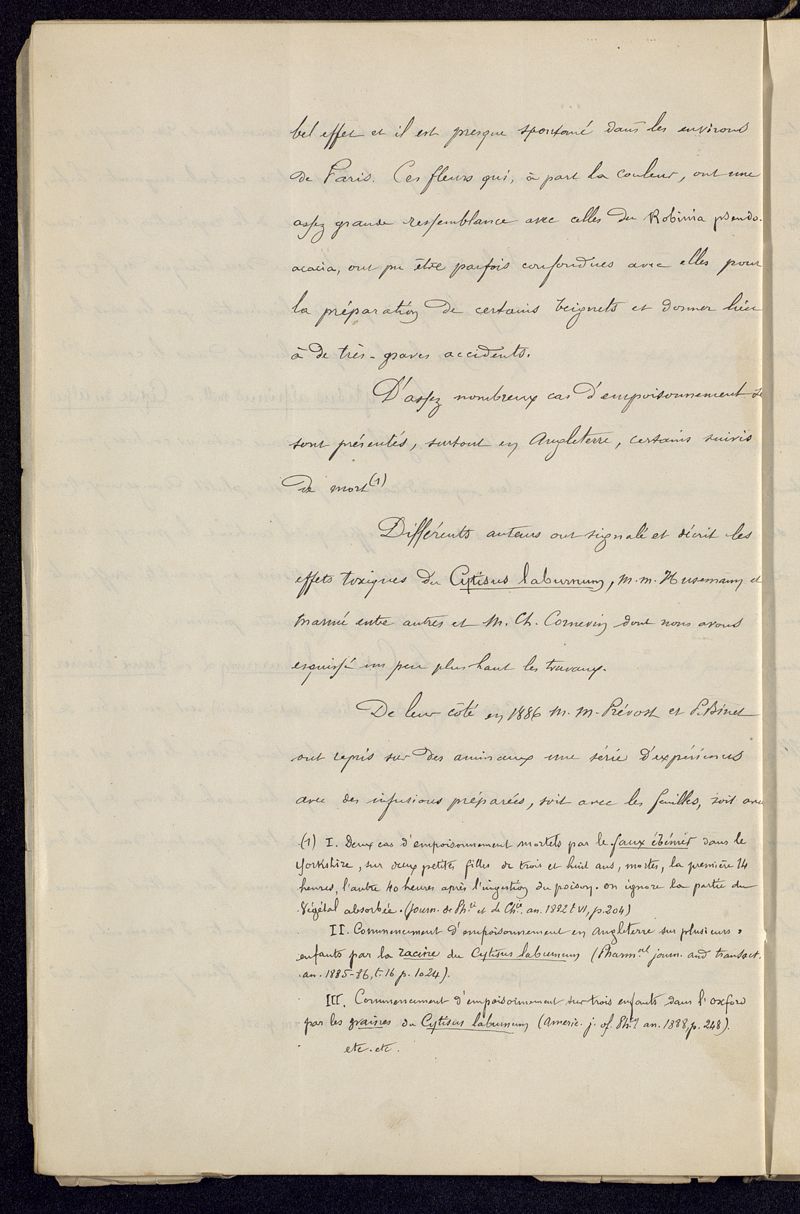 bel effet et il est presque spontané dans les environs
de Paris. Ces fleurs qui, à part la couleur, ont une
assez grande ressemblance avec celles du Robinia pseudo-
acacia, ont pu être parfois confondues avec elles pour
la préparation de certains beignets et donner lieu
à de très-graves accidents.
D'assez nombreux cas d'empoisonnement se
sont présentés, surtout en Angleterre, certains suivis
de mort (1)
Différents auteurs ont signalé et décrit les
effets toxiques du Cytisus laburnum, M.M. Husemann et
Marmé entre autres et M. Ch. Cornevin dont nous avons
esquissé un peu plus haut les travaux.
De leur côté en 1886 M.M. Prévost et P. Binet
ont repris sur des animaux une série d'expériences
avec des infusions préparées, soit avec les feuilles, soit avec
(1) I. Deux cas d'empoisonnement mortels par le faux ébénier dans le
Yorkshire, sur deux petites filles de trois et huit ans, mortes, la première 14
heures, l'autre 40 heures après l'ingestion du poison. on ignore la partie du
végétal absorbée. (Journ. de Phie et de Chie. an. 1882 t VI, p. 204)
II. Commencement d'empoisonnement en Angleterre sur plusieurs
enfants par la racine du Cytisus laburnum (Pharmal journ. and transact.
an. 1885-86, t. 16 p. 1024).
III. Commencement d'empoisonnement sur trois enfants dans l'Oxford
par les graines du Cytisus laburnum (Americ. j. of. Phl an. 1888 p. 248).
etc. etc.